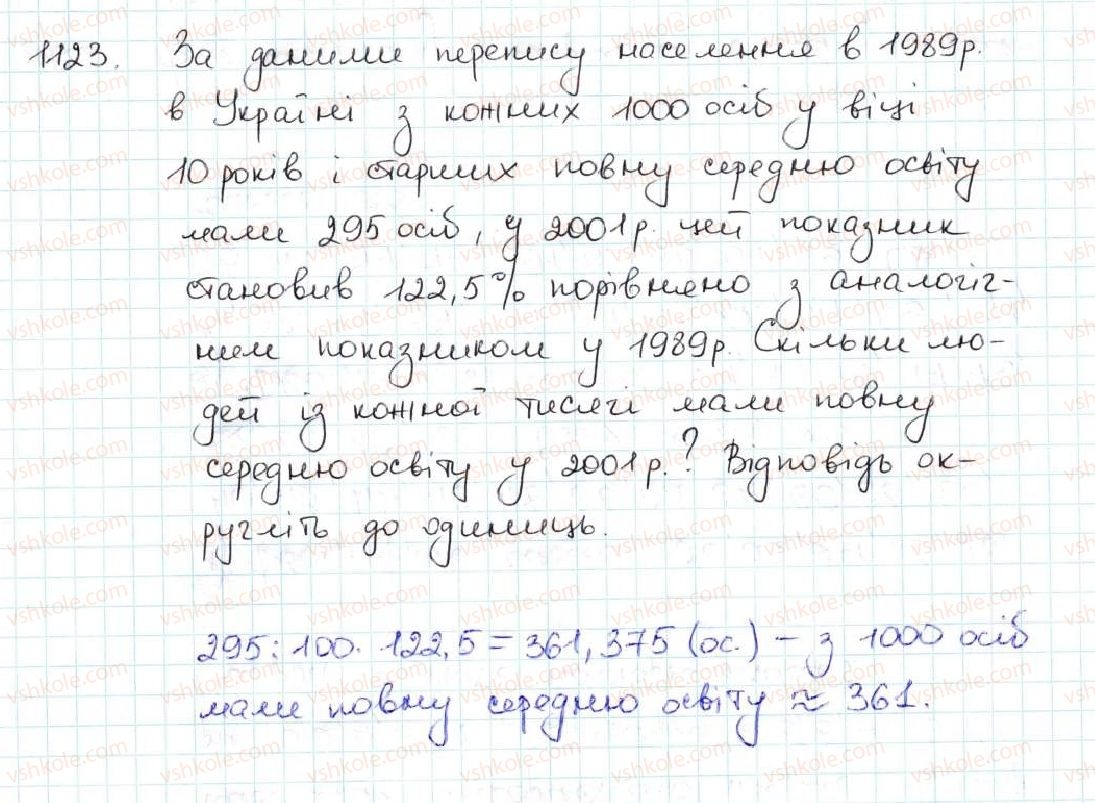 1123. За даними перепису населення в 1989р.
в Україні з кожних 1000 осіб у віці
10 років і старших повну середню освіту
мали 295 осіб, у 2001р. цей показник
становив 122,5% порівняно з аналогіч-
ним показником у 1989р. Скільки лю-
дей із кожної тисячі мали повну
середню освіту у 2001р.? Відповідь ок-
ругліть до одиниць.
295:100·122,5=361,375 (ос.) - з 1000 осіб
мали повну середню освіту ≈ 361.
vshkole.com